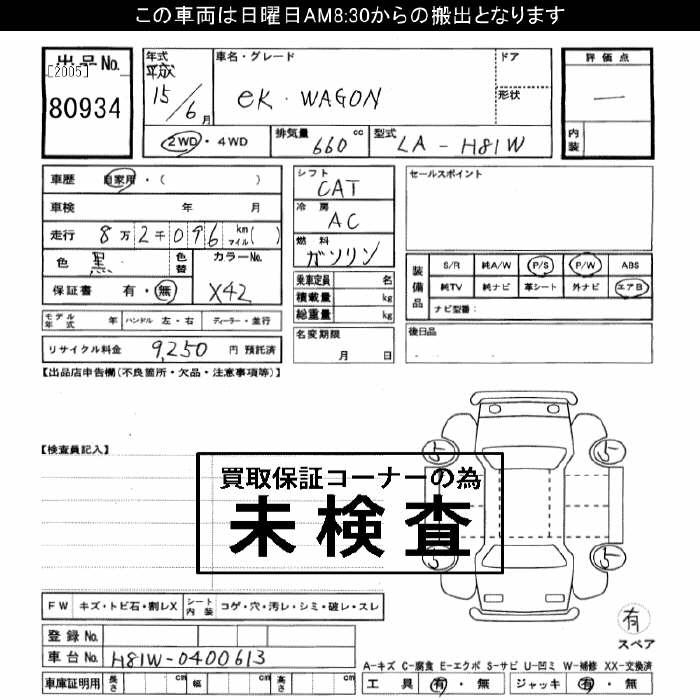 この車両は日曜日AM8:30からの搬出となります
出品No.
[2005]
80934
年式
平成
15/6月
車名・グレード
eK・WAGON
ドア
形状
2WD・4WD
排気量 660 cc
型式 LA-H81W
評価点
—
内装
車歴 自家用・( )
車検 年 月
走行 8万2千096 km マイル( )
色 黒 色替
カラーNo.
X42
保証書 有・無
モデル年式 年 ハンドル 左・右 ディーラー・並行
リサイクル料金 9,250 円 預託済
シフト
CAT
冷房
AC
燃料
ガソリン
乗車定員 名
積載量 kg
総重量 kg
名変期限
月 日
セールスポイント
装備品
S/R 純A/W P/S P/W ABS
純TV 純ナビ 革シート 外ナビ エアB
ナビ型番:
後日品
【出品店申告欄(不良箇所・欠品・注意事項等)】
【検査員記入】
買取保証コーナーの為
未検査
5 5
5 5
有
スペア
FW キズ・トビ石・割レX シート内装 コゲ・穴・汚レ・シミ・破レ・スレ
登録No.
車台No. H81W-0400613
車庫証明用 長さ cm 幅 cm 高さ cm
A-キズ C-腐食 E-エクボ S-サビ U-凹ミ W-補修 XX-交換済
工具 有・無 ジャッキ 有・無